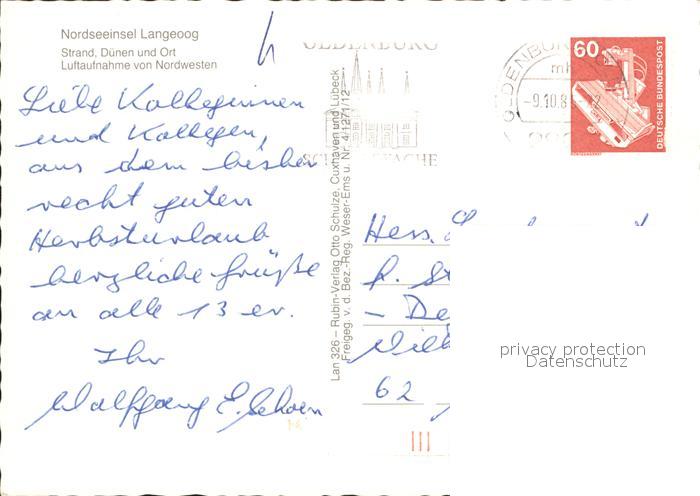 Nordseeinsel Langeoog
Strand, Dünen und Ort
Luftaufnahme von Nordwesten
Liebe Kolleginnen
und Kollegen,
aus dem bisher
recht guten
Herbsturlaub
herzliche Grüße
an alle 13 er.
Ihr
Wolfgang E. Schoen
Lan 326 – Rubin-Verlag Otto Schulze, Cuxhaven und Lübeck
Freigeg. v. d. Bez.-Reg. Weser-Ems u. Nr. 4/1271/12
OLDENBURG
-9.10.8
60
DEUTSCHE BUNDESPOST
Hess.
f. St
– De
62
privacy protection
Datenschutz